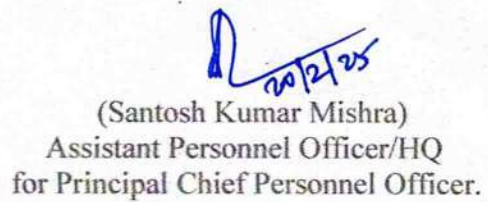 20/2/25
(Santosh Kumar Mishra)
Assistant Personnel Officer/HQ
for Principal Chief Personnel Officer.